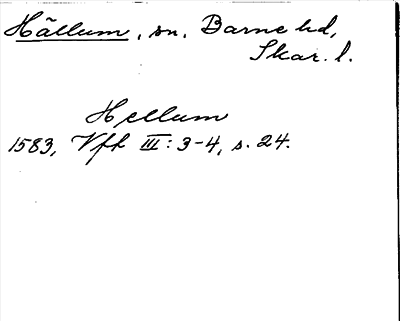 Hällum, sn, Barne hd,
Skar. l.
Hellum
1583, Vfh III: 3-4, s. 24.